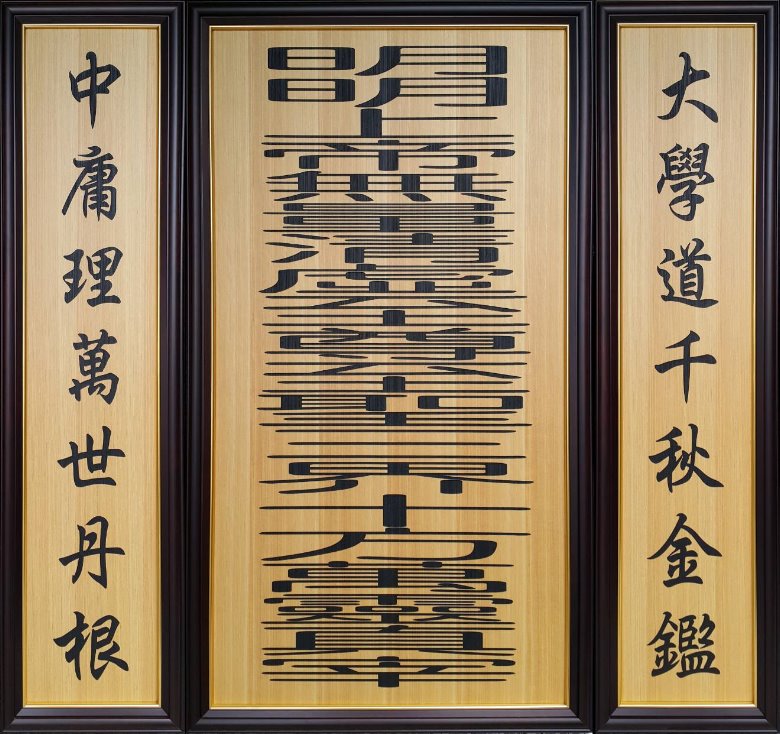 大學道千秋金鑑
明明上帝無量清虛至尊至聖三界十方萬靈真宰
中庸理萬世丹根